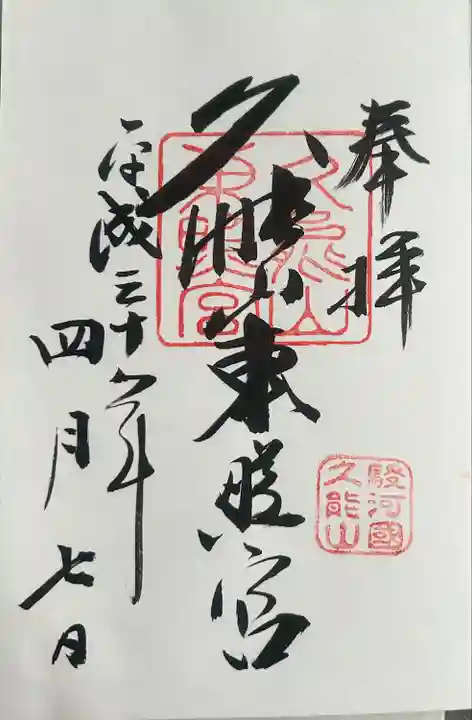 奉拝
久能山東照宮
久能山
東照宮
駿河國
久能山
平成三十年
四月七日